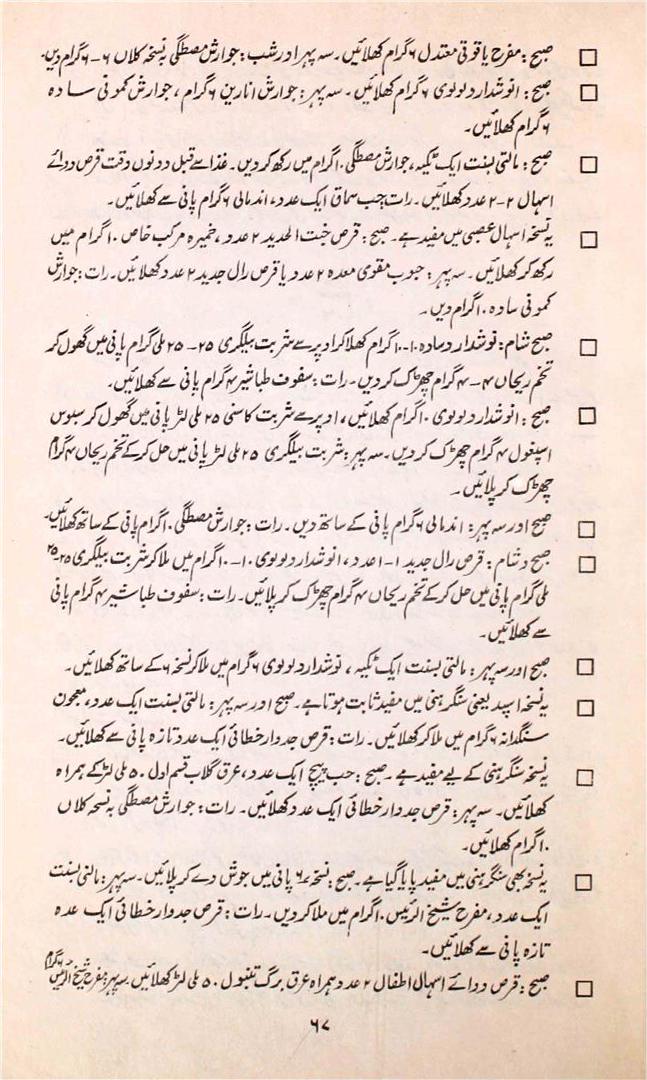 صبح: مفرح یاقوتی معتدل ۶ گرام کھلائیں۔ سہ پہر اور شب: جوارش مصطگی بہ نسخہ کلاں ۶-۶ گرام دیں۔
صبح: انوشدارو لولوی ۶ گرام کھلائیں۔ سہ پہر: جوارش انارین ۶ گرام، جوارش کمونی سادہ
۶ گرام کھلائیں۔
صبح: مالتی بسنت ایک ٹکیہ، جوارش مصطگی ۱۰ گرام میں رکھ کر دیں۔ غذا سے قبل دونوں وقت قرص دوائے
اسہال ۲-۲ عدد کھلائیں۔ رات حب سماق ایک عدد، اندمالی ۶ گرام پانی سے کھلائیں۔
یہ نسخہ اسہال عصبی میں مفید ہے۔ صبح: قرص خبث الحدید ۲ عدد، خمیرہ مرکب خاص ۱۰ گرام میں
رکھ کر کھلائیں۔ سہ پہر: حبوب مقوی معدہ ۲ عدد یا قرص رال جدید ۲ عدد کھلائیں۔ رات: جوارش
کمونی سادہ ۱۰ گرام دیں۔
صبح شام: نوشدارو سادہ ۱۰-۱۰ گرام کھلا کر اوپر سے شربت بیلگری ۲۵-۲۵ ملی گرام پانی میں گھول کر
تخم ریحاں ۴-۴ گرام چھڑک کر دیں۔ رات: سفوف طباشیر ۴ گرام پانی سے کھلائیں۔
صبح: انوشدارو لولوی ۱۰ گرام کھلائیں، اوپر سے شربت کاسنی ۲۵ ملی لٹر پانی میں گھول کر سبوس
اسپغول ۴ گرام چھڑک کر دیں۔ سہ پہر: شربت بیلگری ۲۵ ملی لٹر پانی میں حل کر کے تخم ریحاں ۴ گرام
چھڑک کر پلائیں۔
صبح اور سہ پہر: اندمالی ۶ گرام پانی کے ساتھ دیں۔ رات: جوارش مصطگی ۱۰ گرام پانی کے ساتھ کھلائیں۔
صبح و شام: قرص رال جدید ۱-۱ عدد، انوشدارو لولوی ۱۰-۱۰ گرام میں ملا کر شربت بیلگری ۲۵-۲۵
ملی گرام پانی میں حل کر کے تخم ریحاں ۴ گرام چھڑک کر پلائیں۔ رات: سفوف طباشیر ۴ گرام پانی
سے کھلائیں۔
صبح اور سہ پہر: مالتی بسنت ایک ٹکیہ، نوشدارو لولوی ۶ گرام میں ملا کر نسخہ ۶ کے ساتھ کھلائیں۔
یہ نسخہ اسپید یعنی سنگرہنی میں مفید ثابت ہوتا ہے۔ صبح اور سہ پہر: مالتی بسنت ایک عدد، معجون
سنگدانہ ۶ گرام میں ملا کر کھلائیں۔ رات: قرص جدوار خطائی ایک عدد تازہ پانی سے کھلائیں۔
یہ نسخہ سنگرہنی کے لیے مفید ہے۔ صبح: حب پیچ ایک عدد، عرق گلاب قسم اول ۵۰ ملی لٹر کے ہمراہ
کھلائیں۔ سہ پہر: قرص جدوار خطائی ایک عدد کھلائیں۔ رات: جوارش مصطگی بہ نسخہ کلاں
۱۰ گرام کھلائیں۔
یہ نسخہ بھی سنگرہنی میں مفید پایا گیا ہے۔ صبح: نسخہ ۷۶ پانی میں جوش دے کر پلائیں۔ سہ پہر: مالتی بسنت
ایک عدد، مفرح شیخ الرئیس ۱۰ گرام میں ملا کر دیں۔ رات: قرص جدوار خطائی ایک عدد
تازہ پانی سے کھلائیں۔
صبح: قرص دوائے اسہال اطفال ۲ عدد ہمراہ عرق برگ تنبول ۵۰ ملی لٹر کھلائیں۔ سہ پہر: مفرح شیخ الرئیس گرام
۶۷